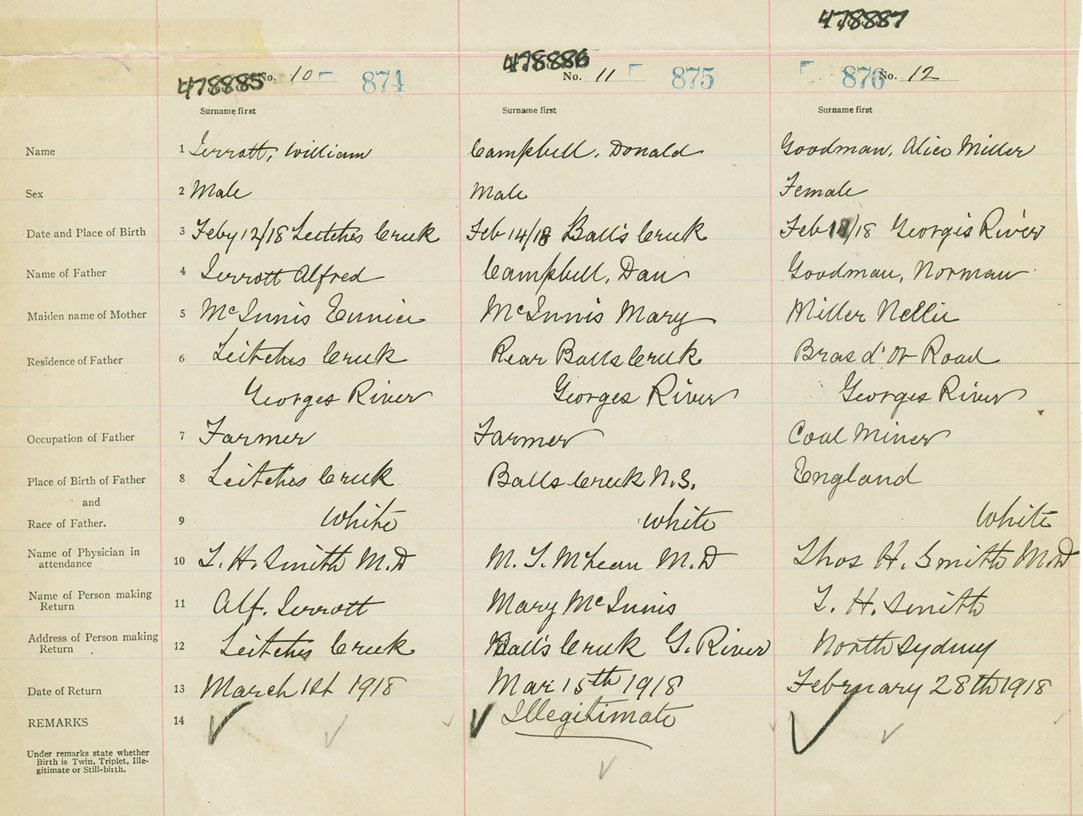 478887
478886
478885 No. 10 874 No. 11 875 876 No. 12
Surname first Surname first Surname first
Name 1 Jerrott, William Campbell, Donald Goodman, Alice Miller
Sex 2 Male Male Female
Date and Place of Birth 3 Feby 12/18 Leitches Creek Feb 14/18 Ball's Creek Feb /18 Georges River
Name of Father 4 Jerrott Alfred Campbell, Dan Goodman, Norman
Maiden name of Mother 5 McInnis Eunice McInnis Mary Miller Nellie
Residence of Father 6 Leitches Creek Rear Balls Creek Bras d'Or Road
Georges River Georges River Georges River
Occupation of Father 7 Farmer Farmer Coal Miner
Place of Birth of Father 8 Leitches Creek Balls Creek N.S. England
and
Race of Father. 9 White White White
Name of Physician in
attendance 10 T. H. Smith M.D M. T. McLean M.D Thos H. Smith M.D
Name of Person making
Return 11 Alf. Jerrott Mary McInnis T. H. Smith
Address of Person making
Return 12 Leitches Creek Ball's Creek G. River North Sydney
Date of Return 13 March 1st 1918 Mar 15th 1918 February 28th 1918
REMARKS 14 Illegitimate
Under remarks state whether
Birth is Twin, Triplet, Ille-
gitimate or Still-birth.